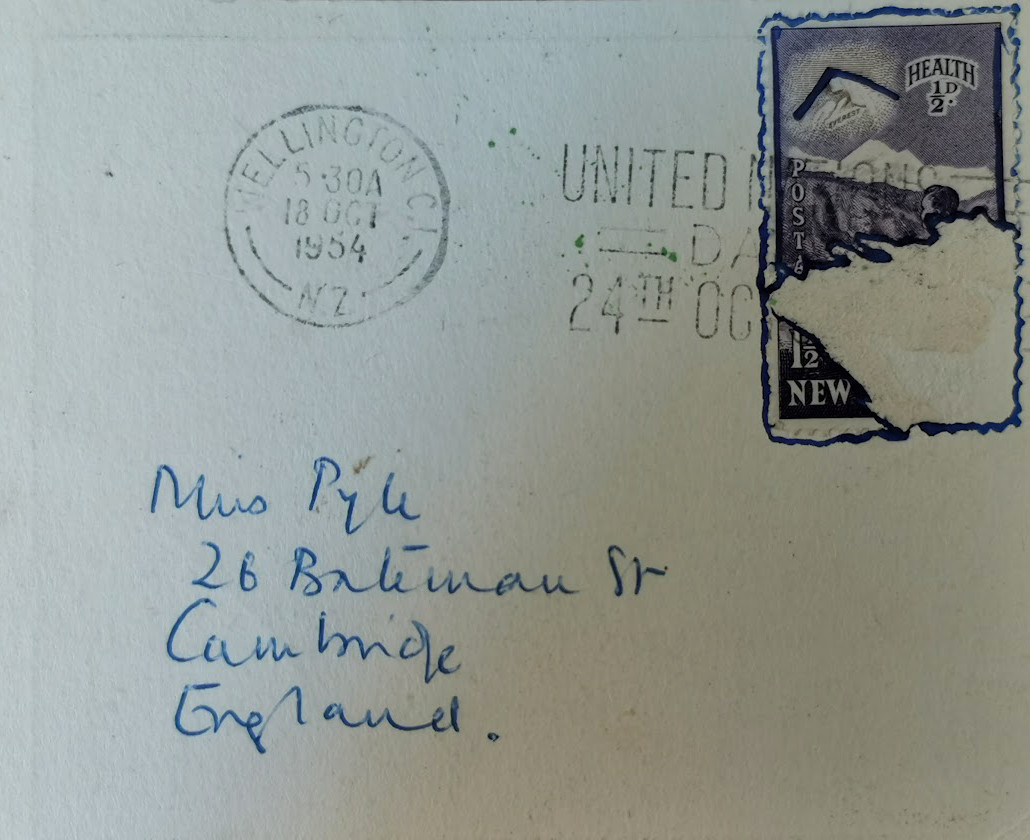 WELLINGTON C.1
5·30A
18 OCT
1954
N.Z.
UNITED NATIONS
DA
24TH OC
HEALTH
½D.
EVEREST
POSTA
1½
NEW
Miss Pyle
26 Bateman St
Cambridge
England.